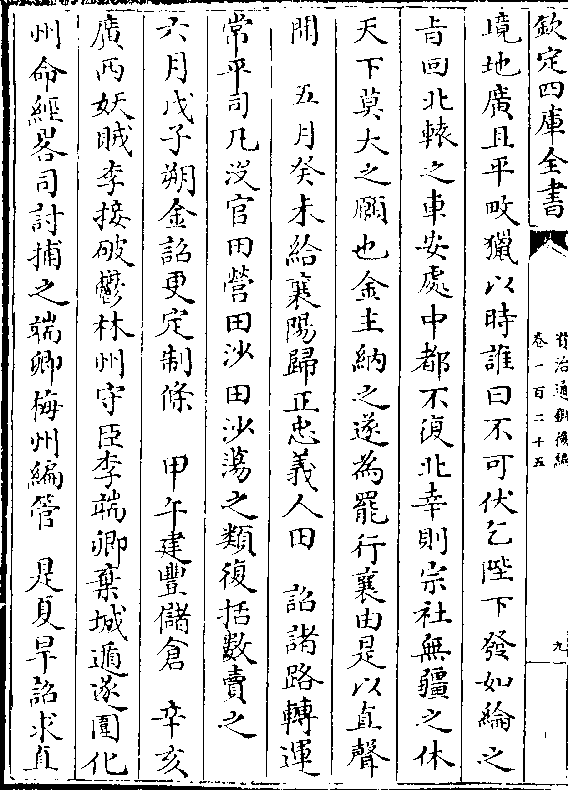 欽定四庫全書
資治通鑑後編
卷一百二十五
九
境地廣且平畋獵以時誰曰不可伏乞陛下發如綸之
旨回北轅之車安處中都不復北幸則宗社無疆之休
天下莫大之願也金主納之遂為罷行襄由是以直聲
聞　五月癸未給襄陽歸正忠義人田　詔諸路轉運
常平司凡沒官田營田沙田沙蕩之類復括數賣之
六月戊子朔金詔更定制條　甲午建豐儲倉　辛亥
廣西妖賊李接破鬱林州守臣李端卿棄城遁遂圍化
州命經畧司討捕之端卿梅州編管　是夏旱詔求直